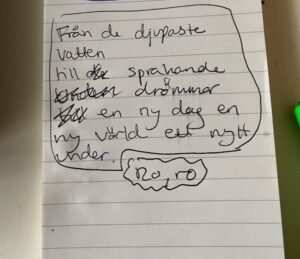 Från de djupaste
vatten
till sprakande
drömmar
en ny dag en
ny värld ett nytt
under.
Ro, ro